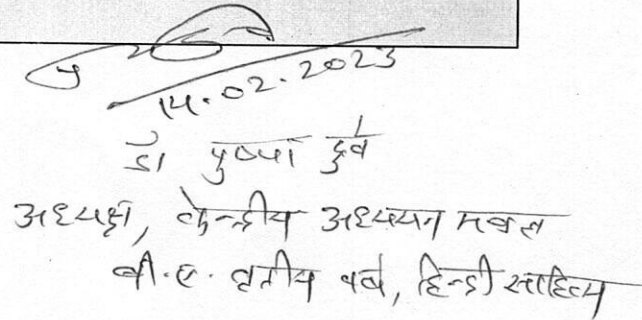 14.02.2023
डॉ पुष्पा दुबे
अध्यक्ष, केन्द्रीय अध्ययन मण्डल
बी.ए. तृतीय वर्ष, हिन्दी साहित्य